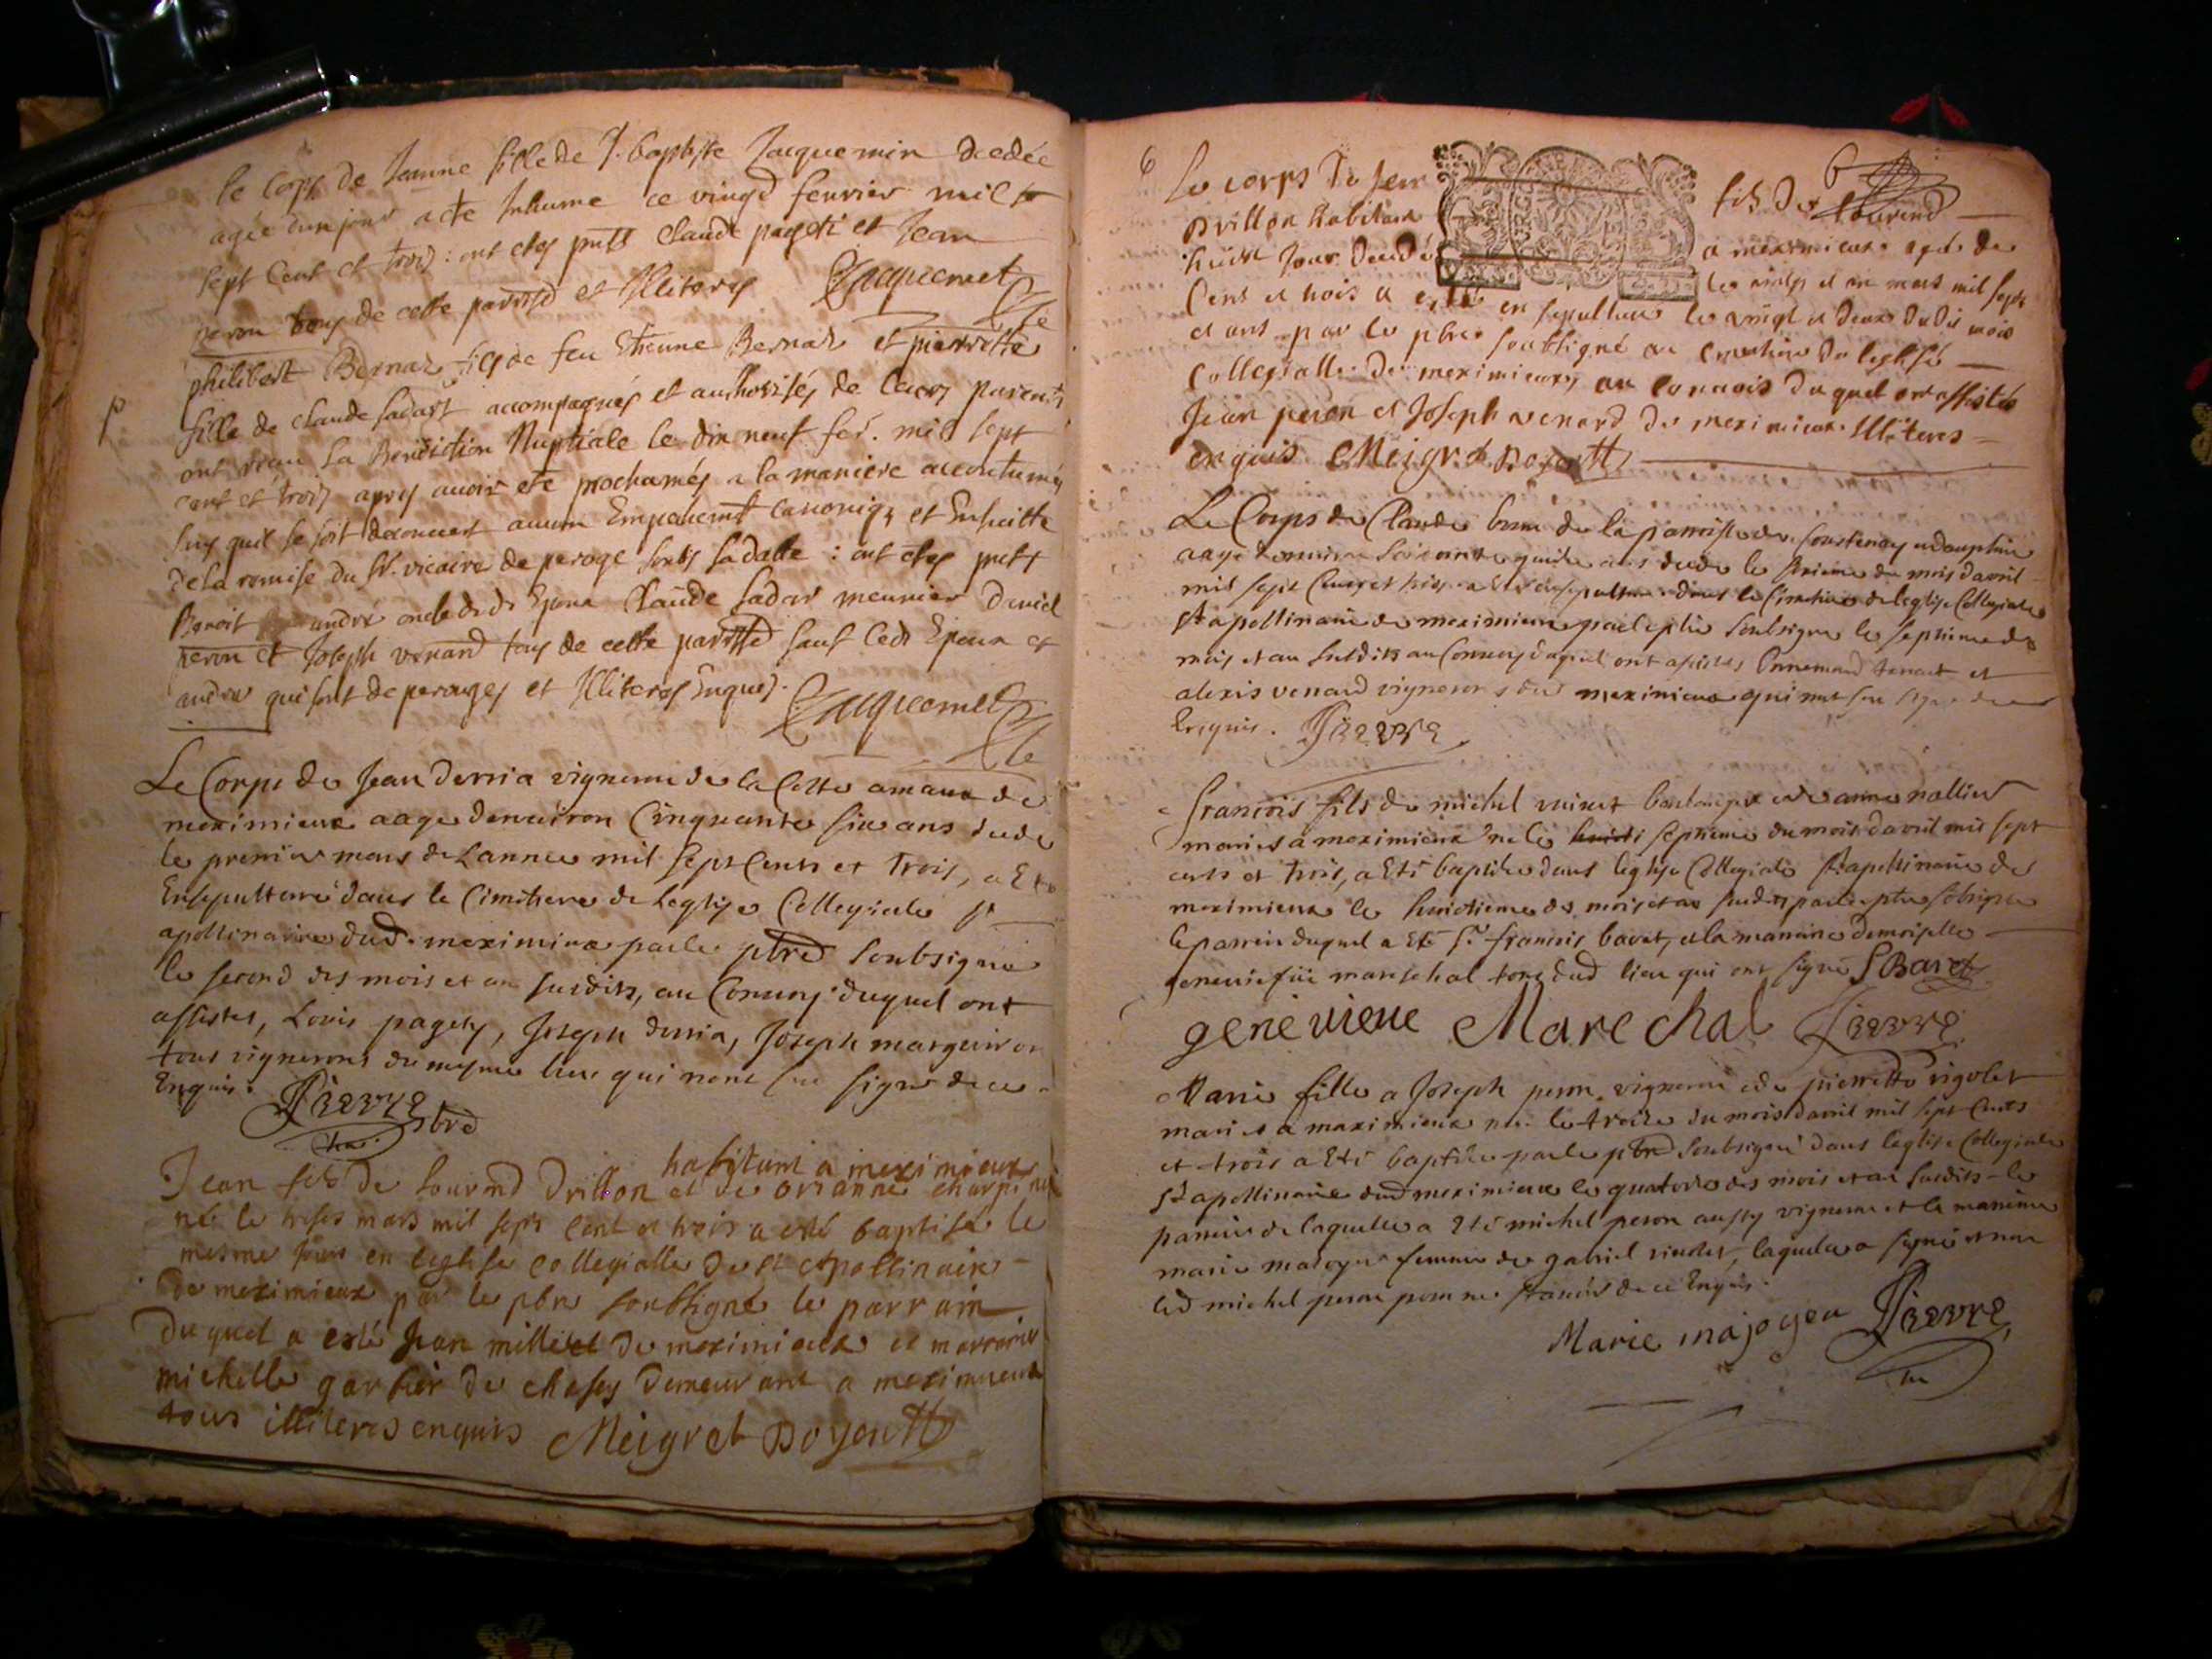 le Corps de Jeanne fille de J. baptiste Jacquemin decedée
agée dun jour a ete Inhumé ce vingt fevrier mil
sept Cent et trois : ont etes pntt Claude pageti et Jean
peron tous de cette parrisse et Illiteres Jacquemet
philibert Bernar fils de feu Etienne Bernar et pierrette
fille de Claude sadart accompagnés et authorisés de leurs parents
ont receu La Benediction Nuptiale le dix neuf fev. mil sept
cent et trois apres avoir ete proclamés a la maniere accoutumés
sans quil se soit decouvert aucun Empechemt canoniq; et Ensuitte
de la remise du Sr. vicaire de peroge soubs sa datte : ont etes pntt
Benoit andré oncle dudt Epoux Claude sadar meunier Daniel
peron et Joseph venard tous de cette parrisse sauf ledt Epoux et
andré qui sont de perouges et Illiteres Enquis. Jacquemet
Le Corps de Jean derria vigneron de la Coste amaux de
meximieux aage denviron Cinquante six ans decedé
le premier mars de Lannee mil sept Cents et trois, a Eté
Ensepulturé dans le Cimitiere de Leglise Collegiale St
apollinaire dud. meximieux par le pbre soubsigné
le second des mois et an susdits, au Convoy duquel ont
assistes, Louis pagety, Joseph derria, Joseph margueiron
tous vignerons du mesme lieu qui nont sçu signer de ce
Enquis. Pierre pbre
habitant a meximieux
Jean fils de Lourend Drillon et de orianne charpine
né le treses mars mil sept cent et trois a esté baptisé le
mesme jour en leglise collegialle de St Apollinaire
de meximieux par le pbre soubsigné le parrain
duquel a esté Jean milliet de meximieux et marraine
michelle garbier de chasey demeurant a meximieux
tous illiteres enquis Meigret Doyen
6 Le corps de Jean fils de Lourend 6
Drillon habitant a meximieux agé de
huict jour decedé le vingt et un mars mil sept
Cent et trois a esté en sepulture le vingt et deux dudit mois
et ans par le pbre soubsigné au cimetiere de leglise
Collegialle de meximieux au convois duquel ont assistés
Jean peron et Joseph venard de meximieux Illiteres
enquis Meigret Doyen
Le Corps de Claude brun de la parroisse de en dauphine
aagé denviron soixante quinze ans decedé le sixieme du mois davril
mil sept Cents et trois a Eté Ensepulturé dans le Cimitiere de leglise Collegiale
St apollinaire de meximieux par le pbre soubsigné le septieme des
mois et an susdits au Convoy duquel ont assistes Ennemond tenaet et
alexis venard vignerons de meximieux qui nont sçu signer de ce
Enquis. Pierre
francois fils de michel boulenger et de anne nallier
mariés a meximieux né le septieme du mois davril mil sept
cents et trois, a Eté baptisé dans leglise Collegiale St apollinaire de
meximieux le huictieme des mois et an susdits par le pbre soubsigné
le parrein duquel a Eté Sr francois bavet, et la marraine demoiselle
geneviefve mareschal tous dud lieu qui ont signé F Bavet
genevieve Marechal Pierre
Marie fille a Joseph peron vigneron et de pierrette rigolet
mariés a meximieux née le treize du mois davril mil sept Cents
et trois a Eté baptisée par le pbre soubsigné dans leglise Collegiale
St apollinaire dud meximieux le quatorze des mois et an susdits le
parrein de laquelle a Eté michel peron aussy vigneron et la marreine
marie majoyer femme de gabriel laquelle a signé et non
led michel peron pour ne sçavoir de ce Enquis.
Marie majoyer Pierre